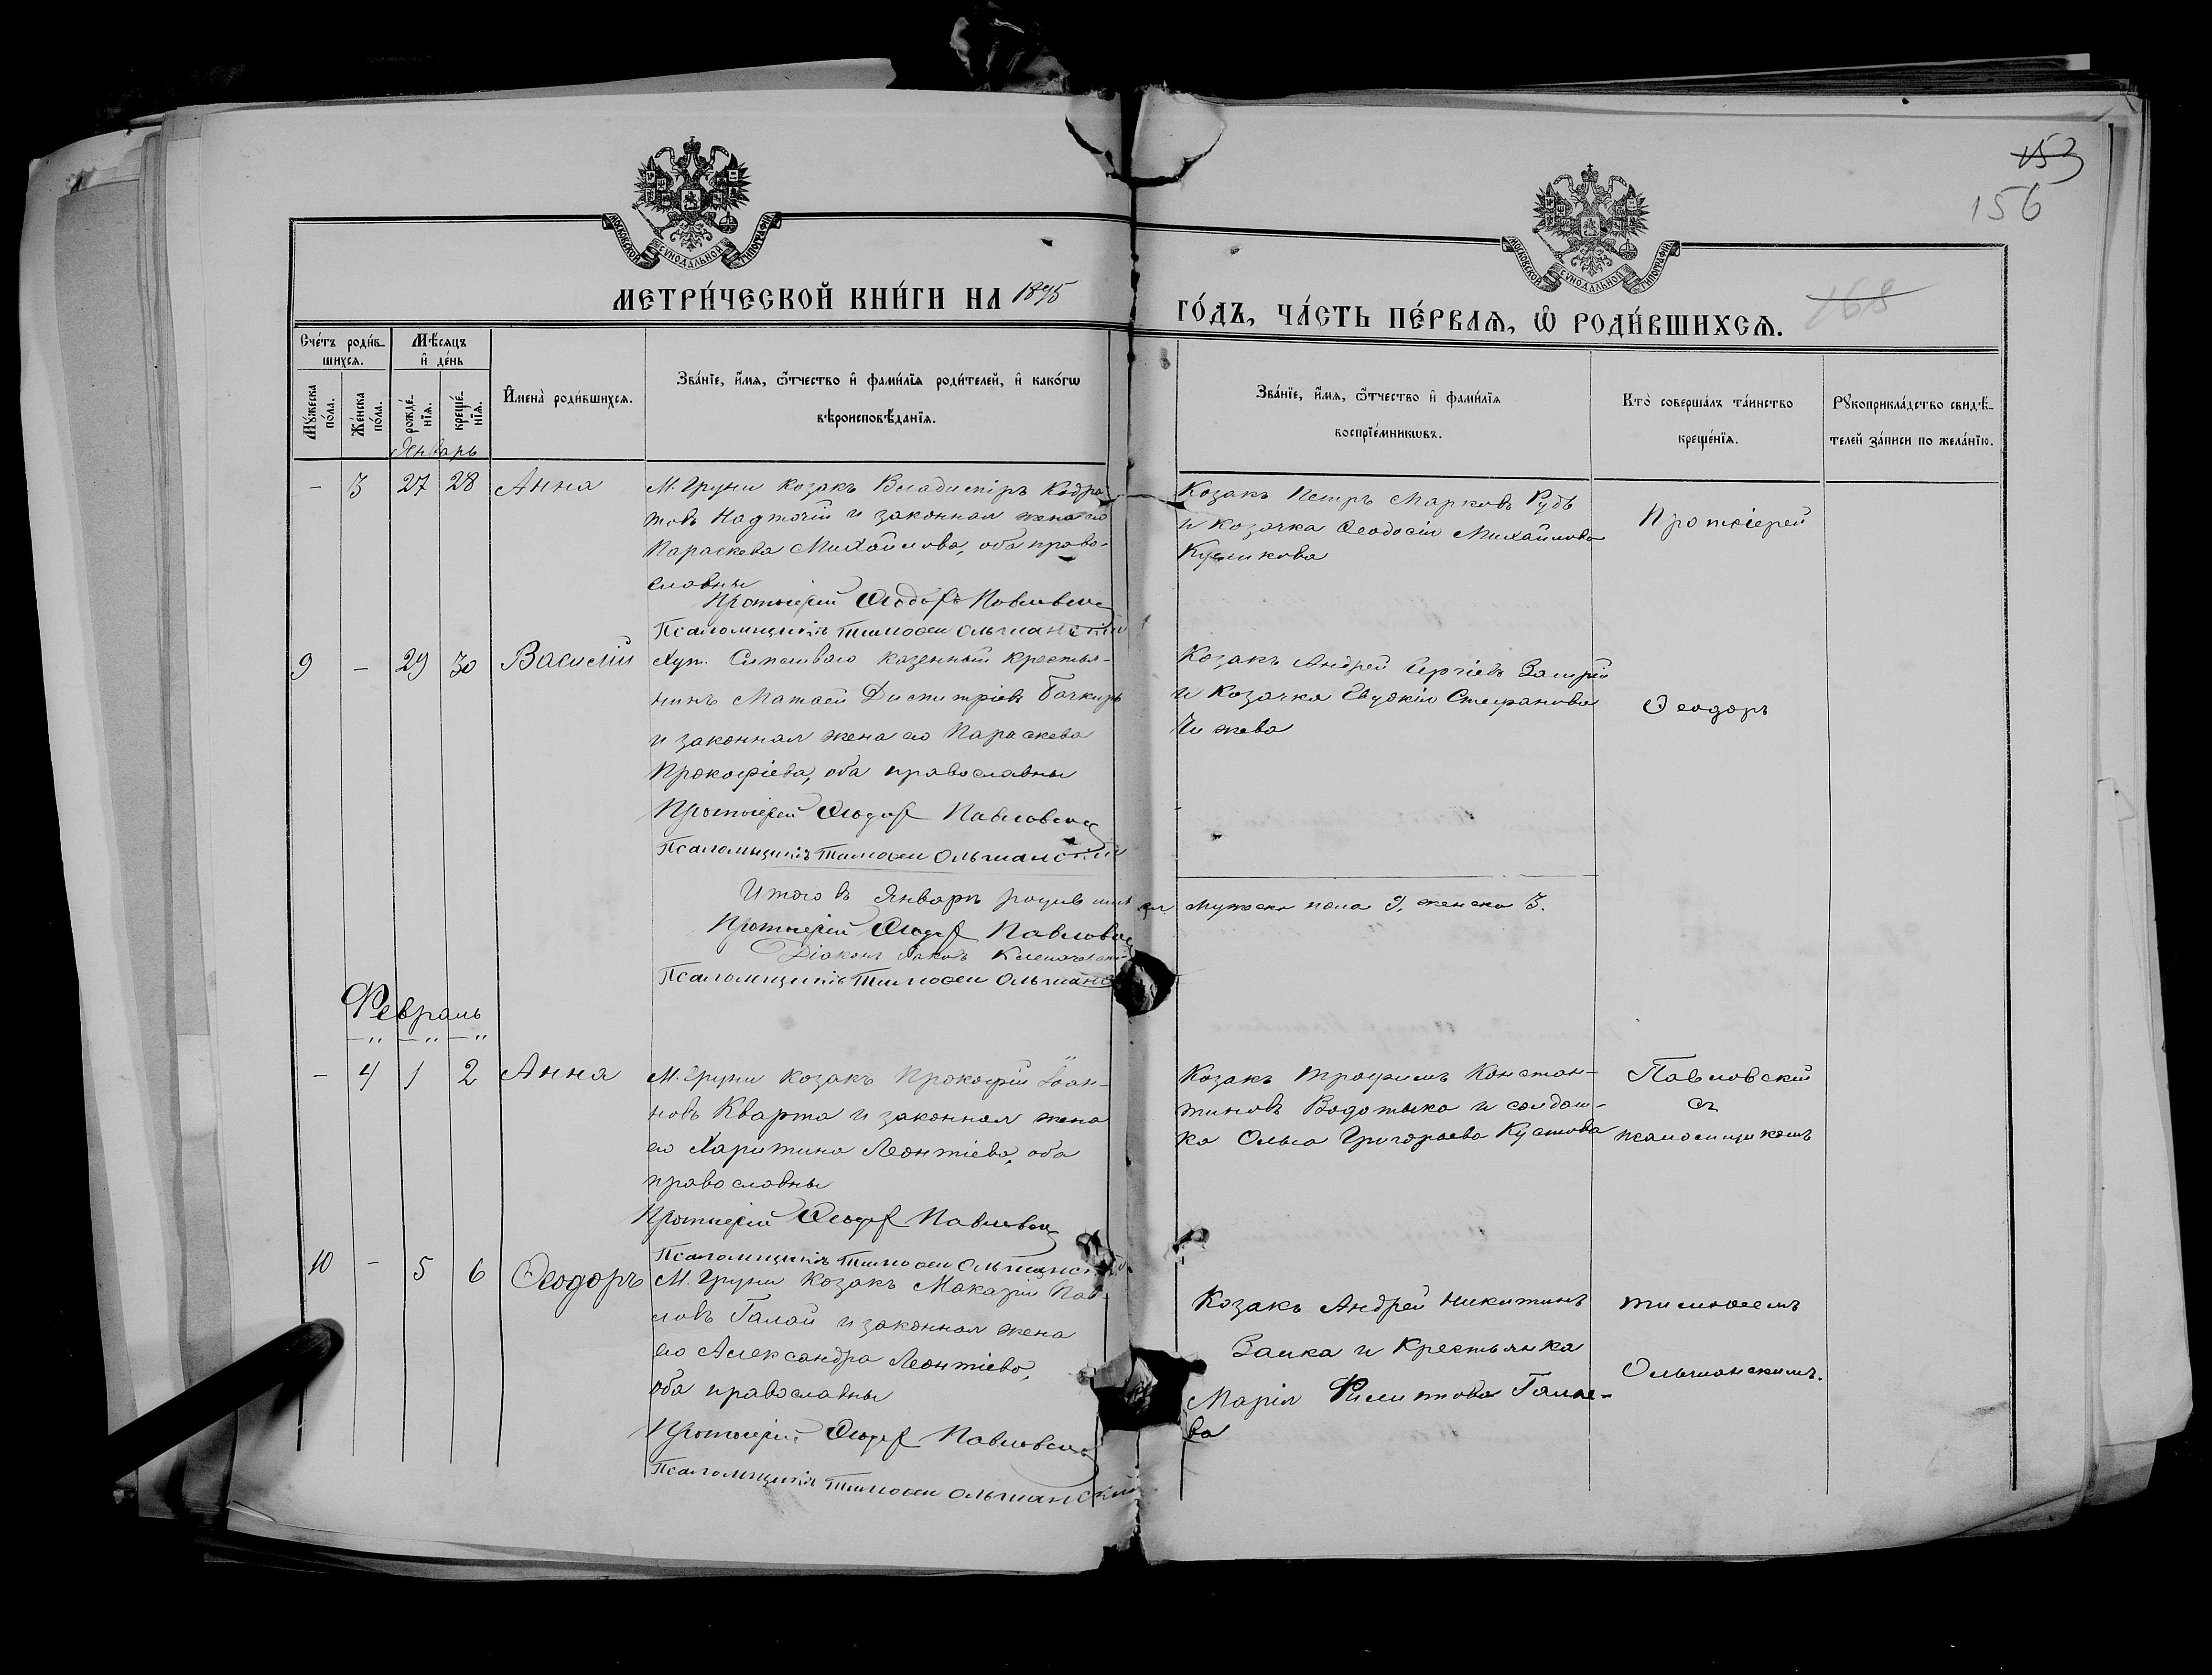 153
156
168
МОСКОВСКОЙ СѴНОДАЛЬНОЙ ТИПОГРАФІИ
МОСКОВСКОЙ СѴНОДАЛЬНОЙ ТИПОГРАФІИ
МЕТРИ́ЧЕСКОЙ КНИ́ГИ НА 1895
ГО́ДЪ, ЧА́СТЬ ПЕ́РВАѦ, Ѿ РОДИ́ВШИХСѦ.
Сче́тъ роди́в-
шихсѧ.
Мꙋ́жеска по́ла.
Же́нска по́ла.
Мѣ́сѧцъ
и҆ де́нь
рожде́-
нїѧ.
креще́-
нїѧ.
И҆мена̀ роди́вшихсѧ.
Зва́нїе, и҆́мѧ, ѻ҆́тчество и҆ фами́лїѧ роди́телей, и҆ како́гѡ
вѣроисповѣ́данїѧ.
Зва́нїе, и҆́мѧ, ѻ҆́тчество и҆ фами́лїѧ
воспрїе́мникѡвъ.
Кто̀ соверша́лъ та́инство
креще́нїѧ.
Рꙋкоприкла́дство свидѣ́-
телей за́писи по жела́нїю.
Январь
- 3 27 28 Анна
М. Груни козакъ Владиміръ Кодра-
товъ Надточій и законная жена его
Параскева Михайлова, оба право-
славны
Протоіерей Ѳеодоръ Павловскій
Псаломщикъ Тимоѳей Ольшанскій
Козакъ Петръ Марковъ Рудь
и козачка Ѳеодосія Михайлова
Куликова
Протоіерей
9 - 29 30 Василій
Хут. казенный крестья-
нинъ Матѳей Димитріевъ Бачкиръ
и законная жена его Параскева
Прокофіева, оба православны
Протоіерей Ѳеодоръ Павловскій
Псаломщикъ Тимоѳей Ольшанскій
Козакъ Андрей Сергіевъ
и козачка Евдокія Стефанова
Чижева
Ѳеодоръ
Итого въ Январѣ родившихся мужеска пола 9, женска 3.
Протоіерей Ѳеодоръ Павловскій
Діаконъ Іаковъ
Псаломщикъ Тимоѳей Ольшанскій
Февраль
- 4 1 2 Анна
М. Груни козакъ Прокофій Іоан-
новъ Кварта и законная жена
его Харитина Леонтіева, оба
православны
Протоіерей Ѳеодоръ Павловскій
Псаломщикъ Тимоѳей Ольшанскій
Козакъ Трофимъ Констан-
тиновъ Водотыка и солдат-
ка Ольга Григорьева Кустова
Павловскій
съ
псаломщикомъ
10 - 5 6 Ѳеодоръ
М. Груни козакъ Макарій Пав-
ловъ Галай и законная жена
его Александра Леонтіева,
оба православны
Протоіерей Ѳеодоръ Павловскій
Псаломщикъ Тимоѳей Ольшанскій
Козакъ Андрей Никитинъ
Заика и крестьянка
Марія Филипова Галае-
ва
Тимоѳеемъ
Ольшанскимъ.